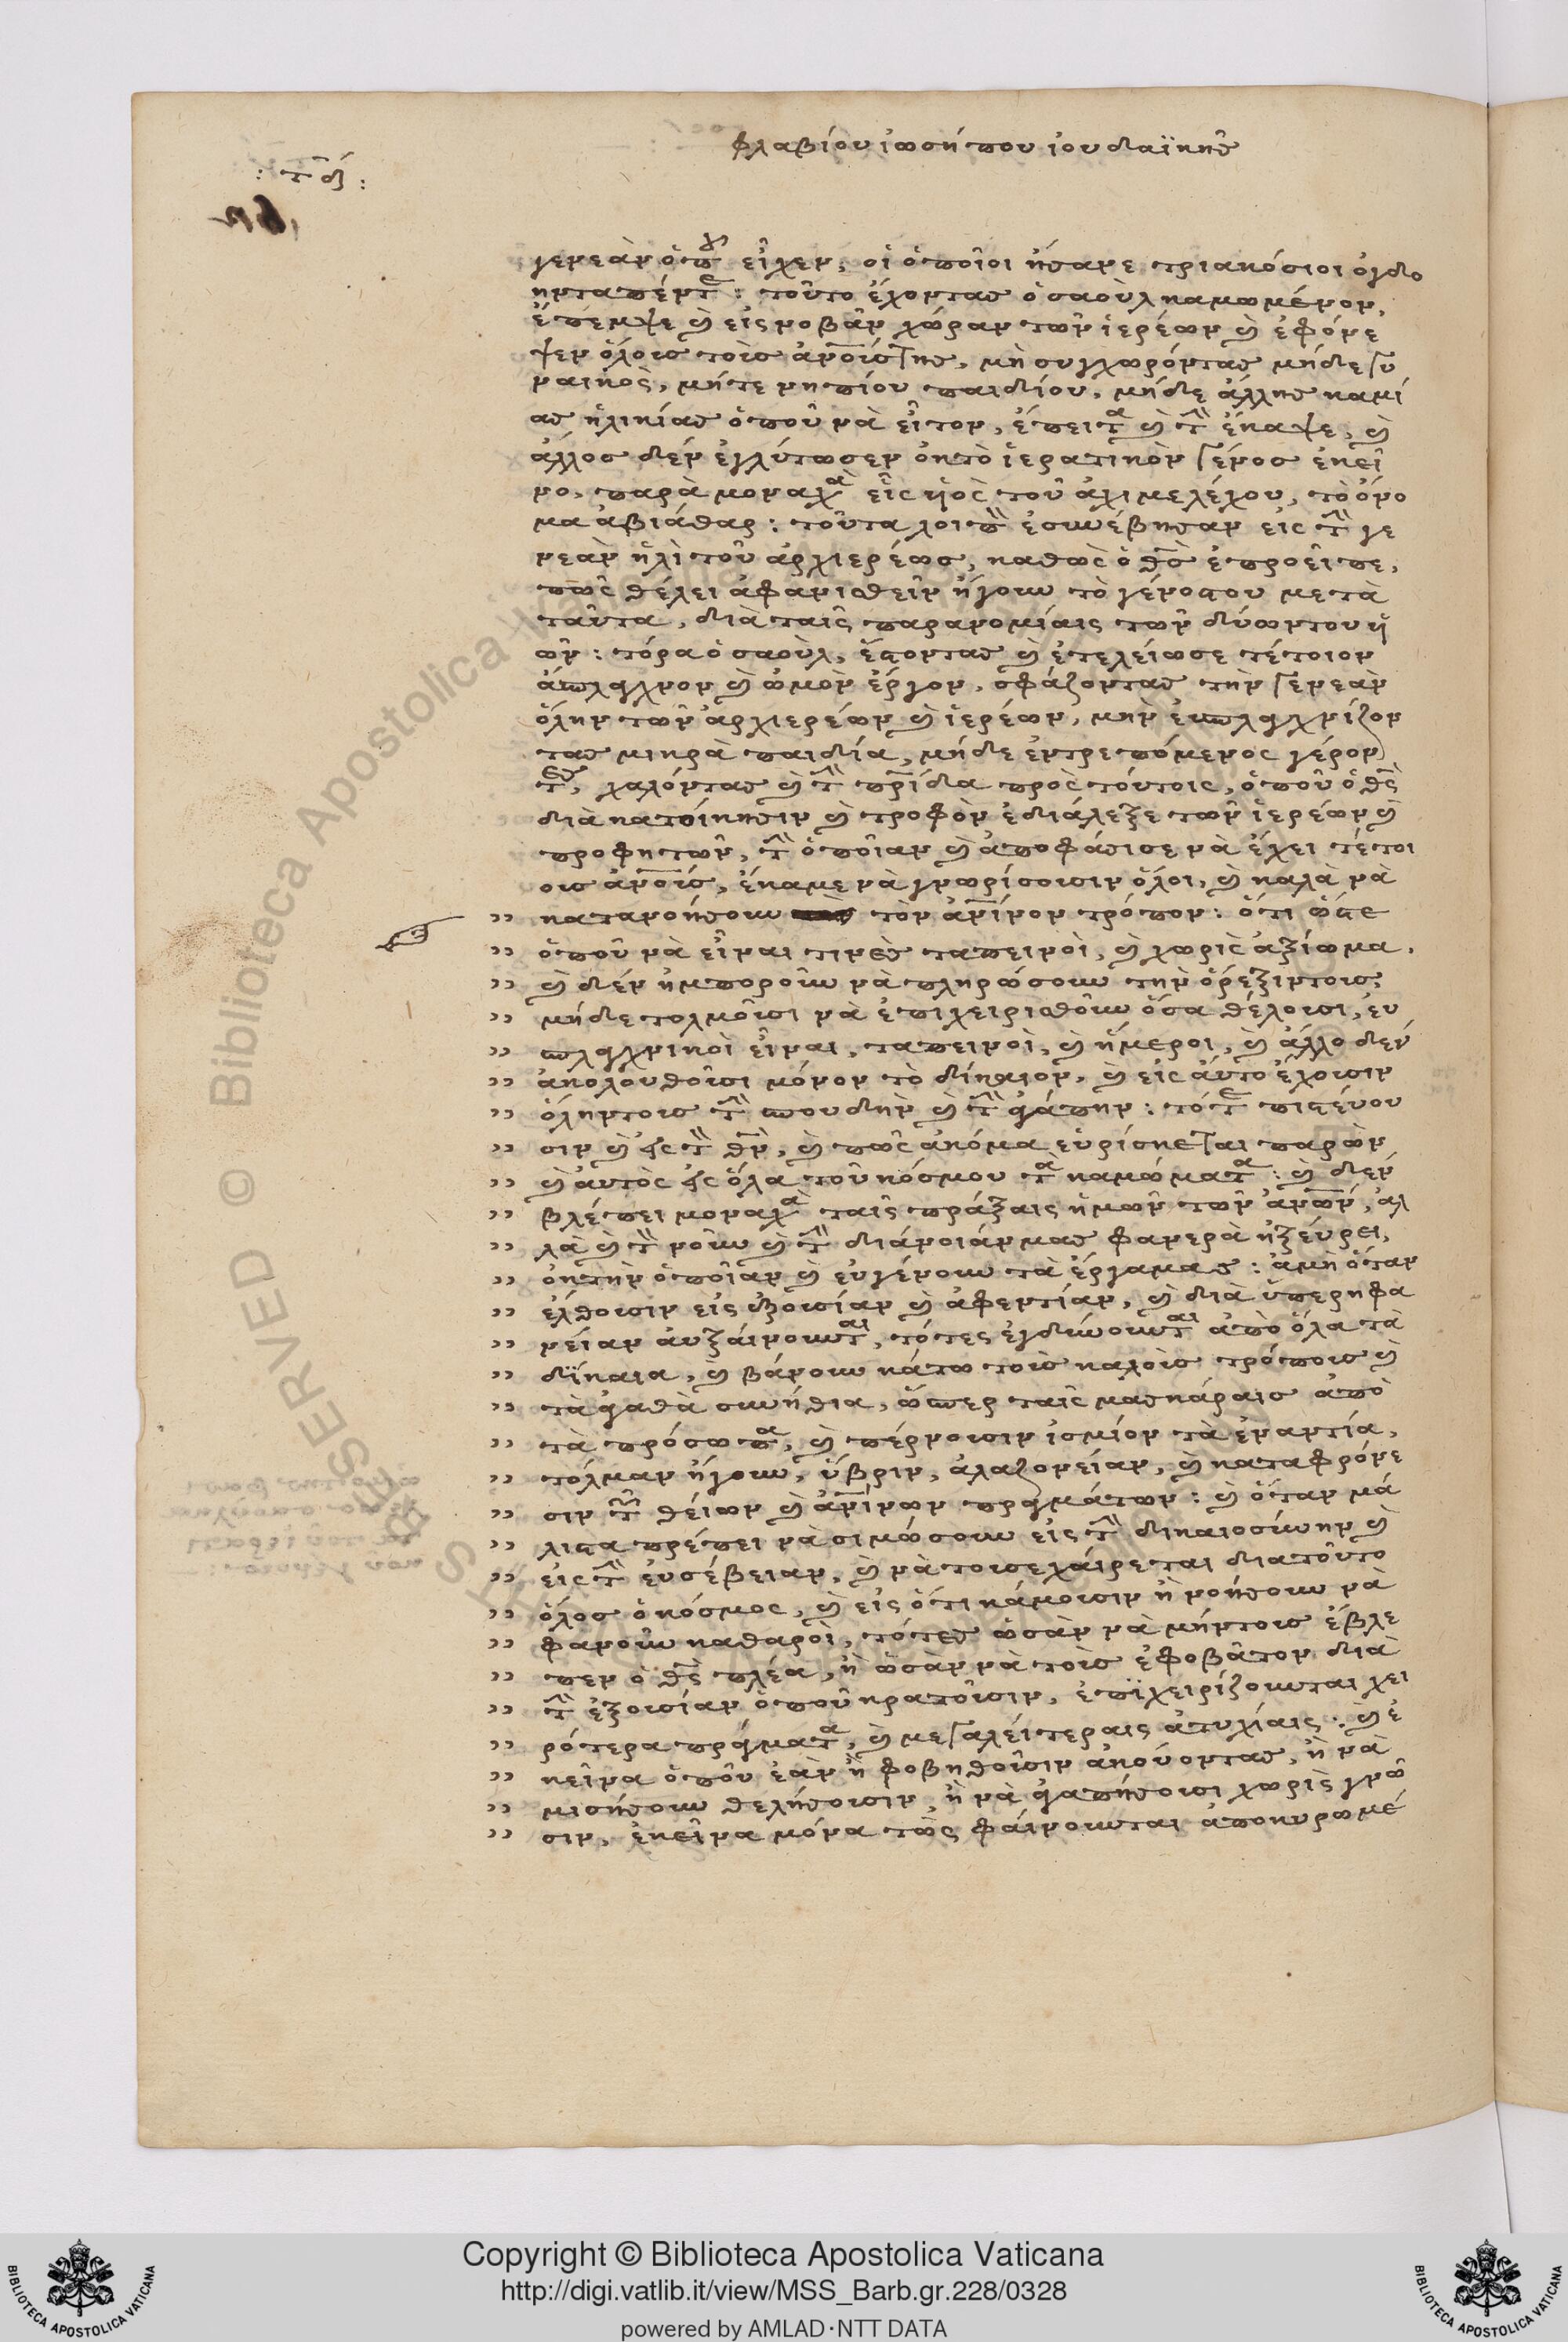 φλαβίου ἰωσήπου ἰουδαϊκῆς
γενεὰν ὁποῦ εἶχεν, οἱ ὁποῖοι ἤσανε τριακόσιοι ὀγδο
ηνταπέντε: τοῦτο ἔχοντας ὁ σαοὺλ καμωμένον,
ἔπεμψε καὶ εἰς νοβᾶν χώραν τῶν ἱερέων καὶ ἐφόνε
ψεν ὅλους τοὺς ἀνούς της, μὴ συγχωρόντας μήδε γυ
ναικὸς, μήτε νηπίου παιδίου, μήδε ἄλλης καμί
ας ἡλικίας ὁποῦ νὰ εἶτον, ἔπειτα καὶ τὴν ἔκαψε, καὶ
ἄλλος δὲν ἐγλύτωσεν ὀκτὸ ἱερατικὸν γένος ἐκεῖ
νο, παρὰ μοναχὰ εἷς ὑὸς τοῦ ἀχιμελέχου, τὸ ὄνο
μα ἀβιάθαρ: τοῦτα λοιπὸν ἐσυνέβησαν εἰς τὴν γε
νεὰν ἡλὶ τοῦ ἀρχιερέως, καθὼς ὁ θς ἐπροεῖπε,
πῶς θέλει ἀφανισθεῖν ἤγουν τὸ γένοστου μετὰ
ταῦτα, διὰ ταῖς παρανομίαις τῶν δύωντου ὑ
ῶν: τόρα ὁ σαοὺλ, ἔστοντας καὶ ἐτελείωσε τέτοιον
ἄσπλαγχνον καὶ ὠμὸν ἔργον, σφάζοντας τὴν γενεὰν
ὅλην τῶν ἀρχιερέων καὶ ἱερέων, μὴν ἐυσπλαγχνίζον
τας μικρὰ παιδία, μήδε ἐντρεπόμενος γέρον
τες, χαλόντας καὶ τὴν πρίδα πρὸς τούτοις, ὁποῦ ὁ θς
διὰ κατοίκησιν καὶ τροφὸν ἐδιάλεξε τῶν ἱερέων καὶ
προφητῶν, τὴν ὁποῖαν καὶ ἀποφάσισε νὰ ἔχει τέτοι
ους ἀνους, ἔκαμε νὰ γνωρίσουσιν ὅλοι, καὶ καλὰ νὰ
,, κατανοήσουν τὸν ἀνινον τρόπον: ὅτι ὥστε
,, ὁποῦ νὰ εἶναι τινὲς ταπεινοὶ, καὶ χωρὶς ἀξίωμα,
,, καὶ δὲν ἠμποροῦν νὰ πληρώσουν τὴν ὄρεξιντους,
,, μήδε τολμοῦσι νὰ ἐπιχειρισθοῦν ὅσα θέλουσι, ἐυ
,, σπλαγχνικοὶ εἶναι, ταπεινοὶ, καὶ ἥμεροι, καὶ ἄλλο δὲν
,, ἀκολουθοῦσι μόνον τὸ δίκαιον, καὶ εἰς ἀυτὸ ἔχουσιν
,, ὅληντους τὴν σπουδὴν καὶ τὴν ἀγάπην: τότε πιστεύου
,, σιν καὶ εἰς τὸν θν, καὶ πῶς ἀκόμα εὑρίσκεται παρὼν
,, καὶ ἀυτὸς εἰς ὅλα τοῦ κόσμου τὰ καμώματα: καὶ δὲν
,, βλέπει μοναχὰ ταῖς πράξαις ἡμῶν τῶν ἀνων, ἀλ
,, λὰ καὶ τὸν νοῦν καὶ τὴν διάνοιάνμας φανερὰ ἠξέυρει,
,, ὀκτὴν ὁποῖαν καὶ ἐυγένουν τὰ ἔργαμας: ἀμὴ ὅταν
,, ἐλθουσιν εἰς ἐξουσίαν καὶ ἀφεντίαν, καὶ διὰ ὑπερηφα
,, νείαν ἀυξάινουνται, τότες ἐγδύνουνται ἀπὸ ὅλα τὰ
,, δίκαια, καὶ βάνουν κάτω τοὺς καλοὺς τρόπους καὶ
,, τὰ ἀγαθὰ συνήθια, ὥσπερ ταῖς μασκάραις ἀπὸ
,, τὰ πρόσωπα, καὶ πέρνουσιν ἰσμίον τὰ ἐναντία,
,, τόλμαν ἤγουν, ὕβριν, ἀλαζονείαν, καὶ καταφρόνε
,, σιν τῶν θείων καὶ ἀνινων πραγμάτων: καὶ ὅταν μά
,, λιστα πρέπει νὰ σιμώσουν εἰς τὴν δικαιοσύνην καὶ
,, εἰς τὴν ἐυσέβειαν, καὶ νὰ τουσεχάιρεται διατοῦτο
,, ὅλος ὁ κόσμος, καὶ εἰς ὅτι κάμουσιν ἢ νοήσουν νὰ
,, φανοῦν καθαροὶ, τότες ὡσὰν νὰ μήντους ἔβλε
,, πεν ὁ θς πλέα, ἢ ὡσὰν νὰ τοὺς ἐφοβᾶτον διὰ
,, τὴν ἐξουσίαν ὁποῦ κρατοῦσιν, ἐπιχειρίζουνται χει
,, ρότερα πράγματα, καὶ μεγαλείτεραις ἀτυχίαις: καὶ ἐ
,, κεῖνα ὁποῦ ἐὰν ἢ φοβηθοῦσιν ἀκούοντας, ἢ νὰ
,, μισήσουν θελήσουσιν, ἢ νὰ ἀγαπήσουσι χωρὶς γνῶ
,, σιν, ἐκεῖνα μόνα τῶς φάινουνται ἀποκυρωμέ
Copyright © Biblioteca Apostolica Vaticana
http://digi.vatlib.it/view/MSS_Barb.gr.228/0328
powered by AMLAD·NTT DATA
BIBLIOTECA APOSTOLICA VATICANA
BIBLIOTECA APOSTOLICA VATICANA